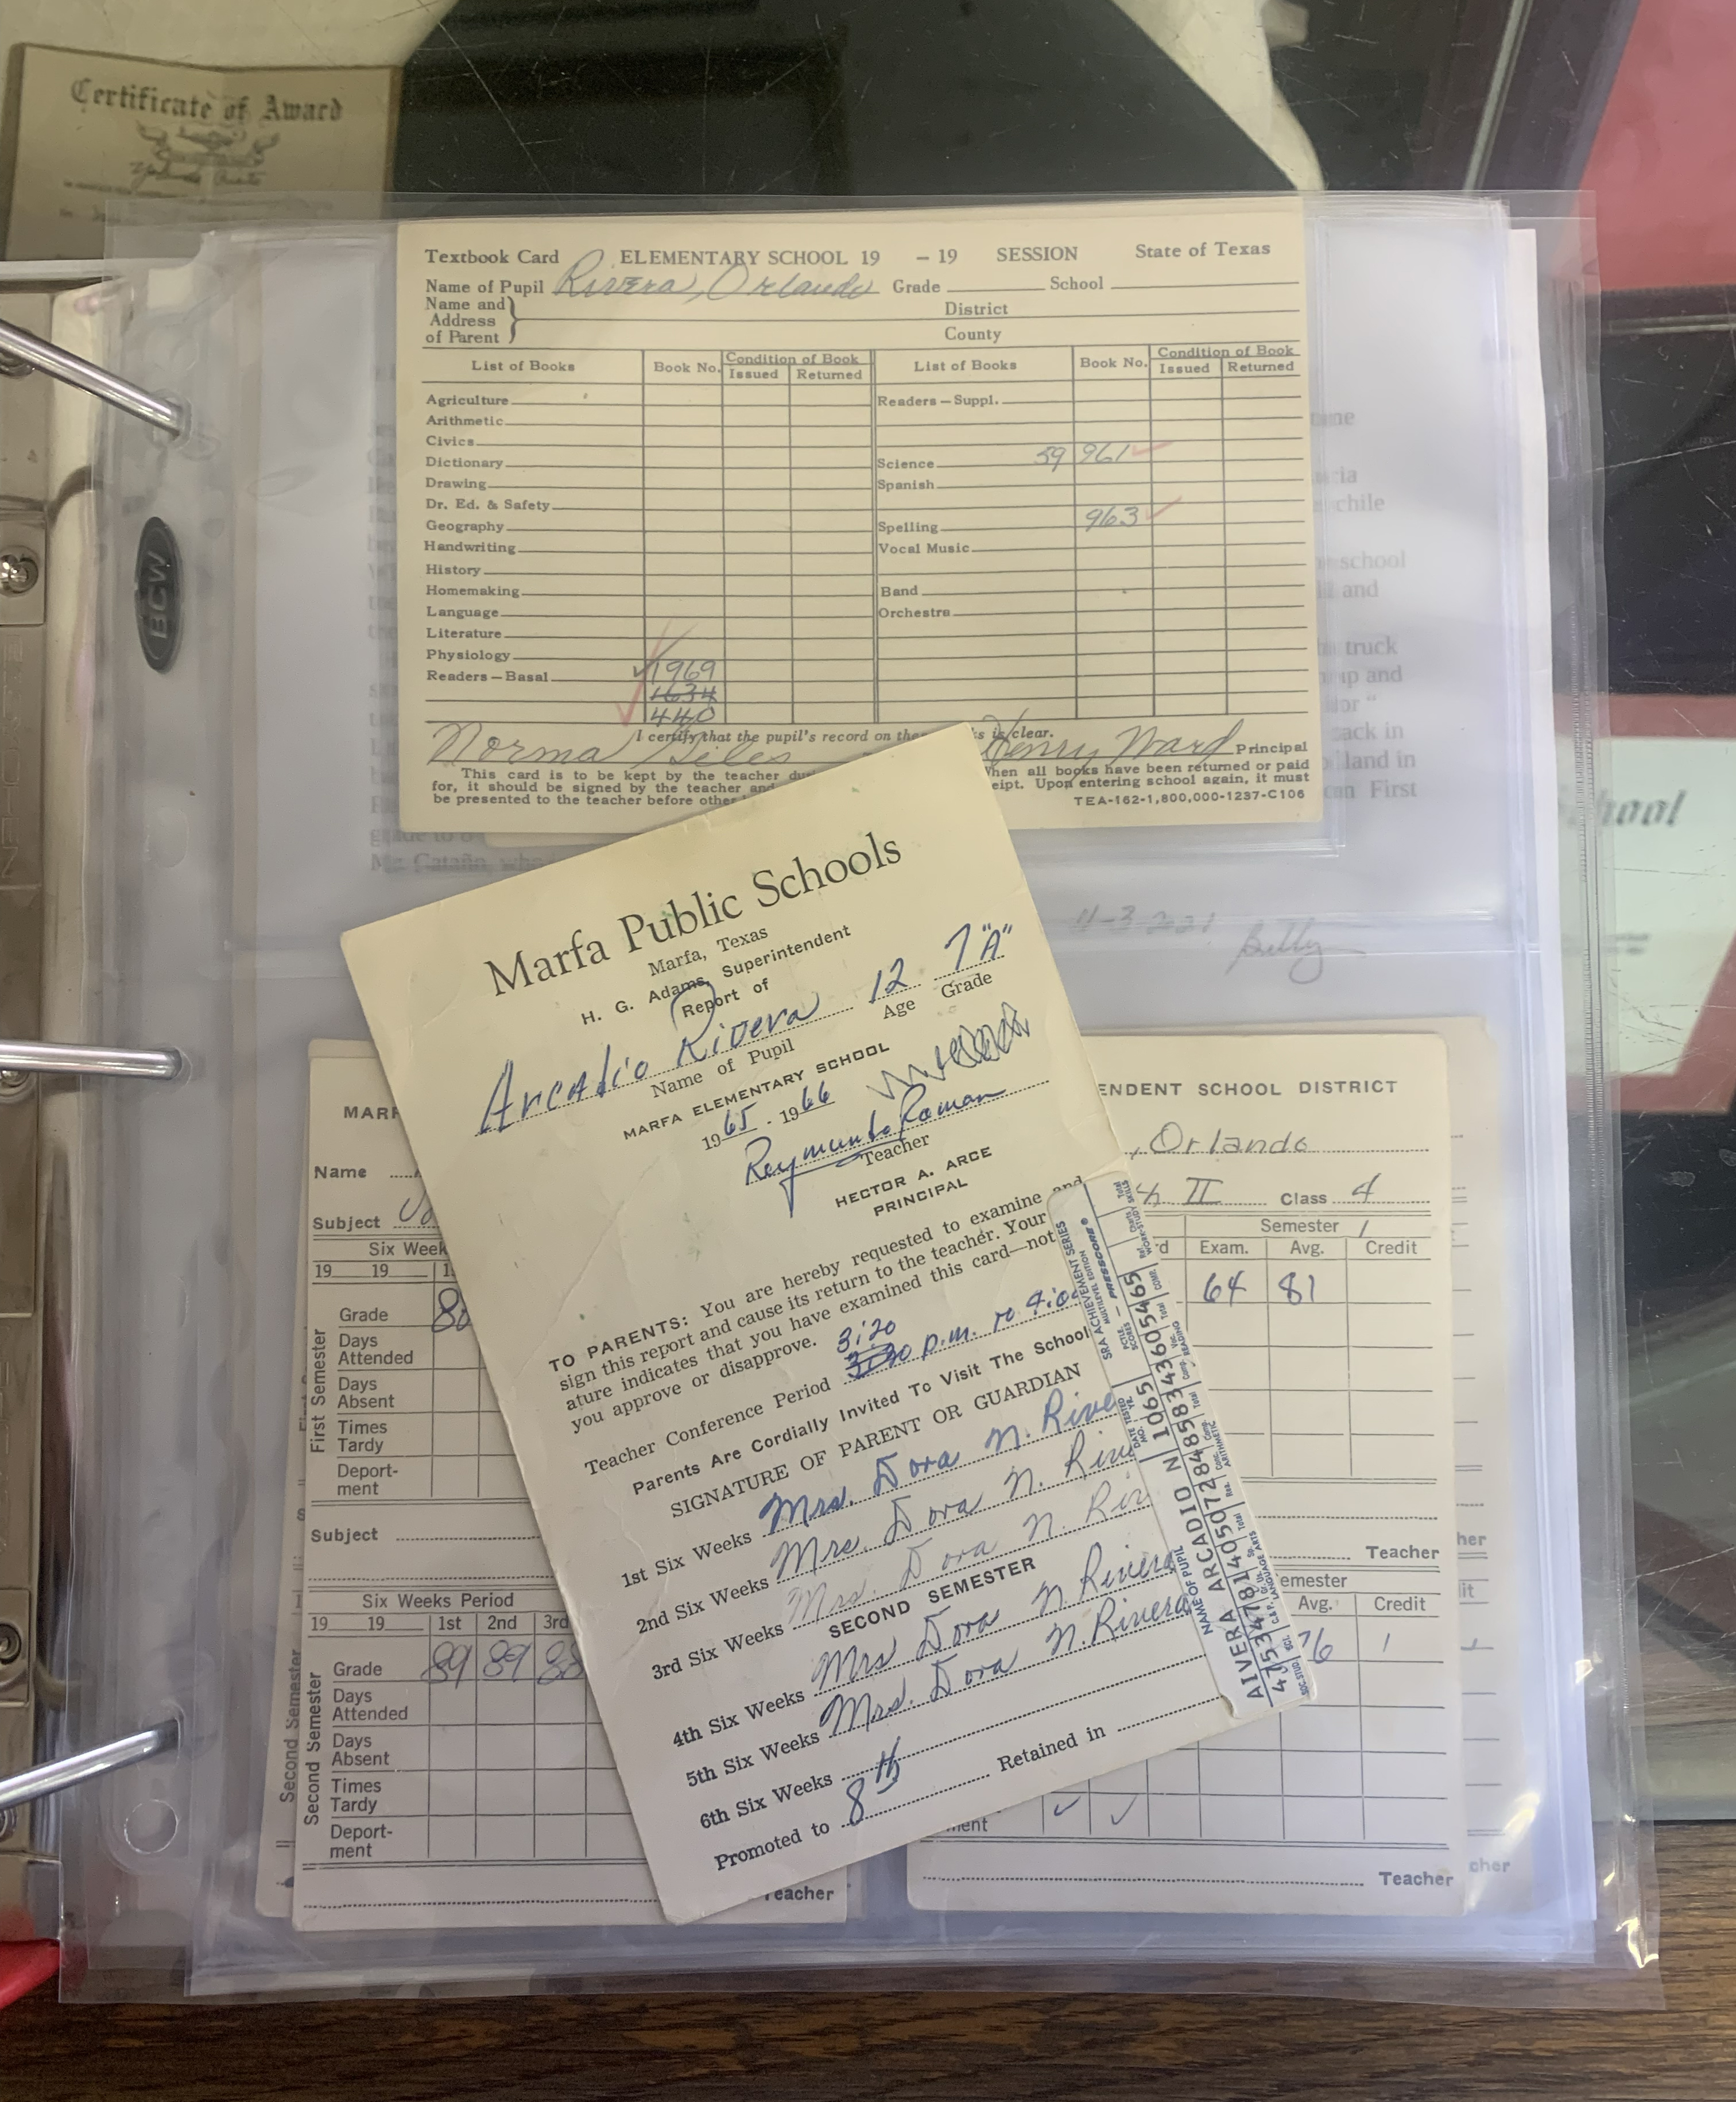 Certificate of Award
Textbook Card ELEMENTARY SCHOOL 19 – 19 SESSION State of Texas
Name of Pupil Rivera, Orlando Grade School
Name and Address of Parent District
County
List of Books Book No. Condition of Book Issued Returned List of Books Book No. Condition of Book Issued Returned
Agriculture Readers—Suppl.
Arithmetic
Civics
Dictionary Science 59 961
Drawing Spanish
Dr. Ed. & Safety
Geography Spelling 963
Handwriting Vocal Music
History
Homemaking Band
Language Orchestra
Literature
Physiology
Readers—Basal 1969
1634
440
I certify that the pupil's record on is clear.
Norma Giles Henry Ward Principal
This card is to be kept by the teacher When all books have been returned or paid
for, it should be signed by the teacher and Upon entering school again, it must
be presented to the teacher before TEA-162-1,800,000-1237-C106
BCW
chile
school
and
truck
and
land in
First
11-3-2021 Billy
Marfa Public Schools
Marfa, Texas
H. G. Adams, Superintendent
Report of
Arcadio Rivera 12 7 "A"
Name of Pupil Age Grade
MARFA ELEMENTARY SCHOOL
1965 - 1966
Reymundo Roman
Teacher
HECTOR A. ARCE
PRINCIPAL
TO PARENTS: You are hereby requested to examine and
sign this report and cause its return to the teacher. Your
ature indicates that you have examined this card—not
you approve or disapprove.
3:20
Teacher Conference Period p.m. to
Parents Are Cordially Invited To Visit The School
SIGNATURE OF PARENT OR GUARDIAN
1st Six Weeks Mrs. Dora N. Rive
2nd Six Weeks Mrs. Dora N. Riv
3rd Six Weeks Mrs. Dora N. Riv
SECOND SEMESTER
4th Six Weeks Mrs Dora N. Rivera
5th Six Weeks Mrs. Dora N. Rivera
6th Six Weeks
Promoted to 8th Retained in
SRA ACHIEVEMENT SERIES
MULTILEVEL EDITION
PRESSCORE
DATE TESTED
NAME OF PUPIL
AIVERA ARCADIO N 1065
Name
Subject
Six Week
19 19
First Semester
Grade 80
Days Attended
Days Absent
Times Tardy
Deport-ment
Subject
Six Weeks Period
19 19 1st 2nd 3rd
Second Semester
Grade 89 89 88
Days Attended
Days Absent
Times Tardy
Deport-ment
Teacher
ENDENT SCHOOL DISTRICT
, Orlando
II Class 4
Semester 1
Exam. Avg. Credit
64 81
Teacher
emester
Avg. Credit
76 1
Teacher